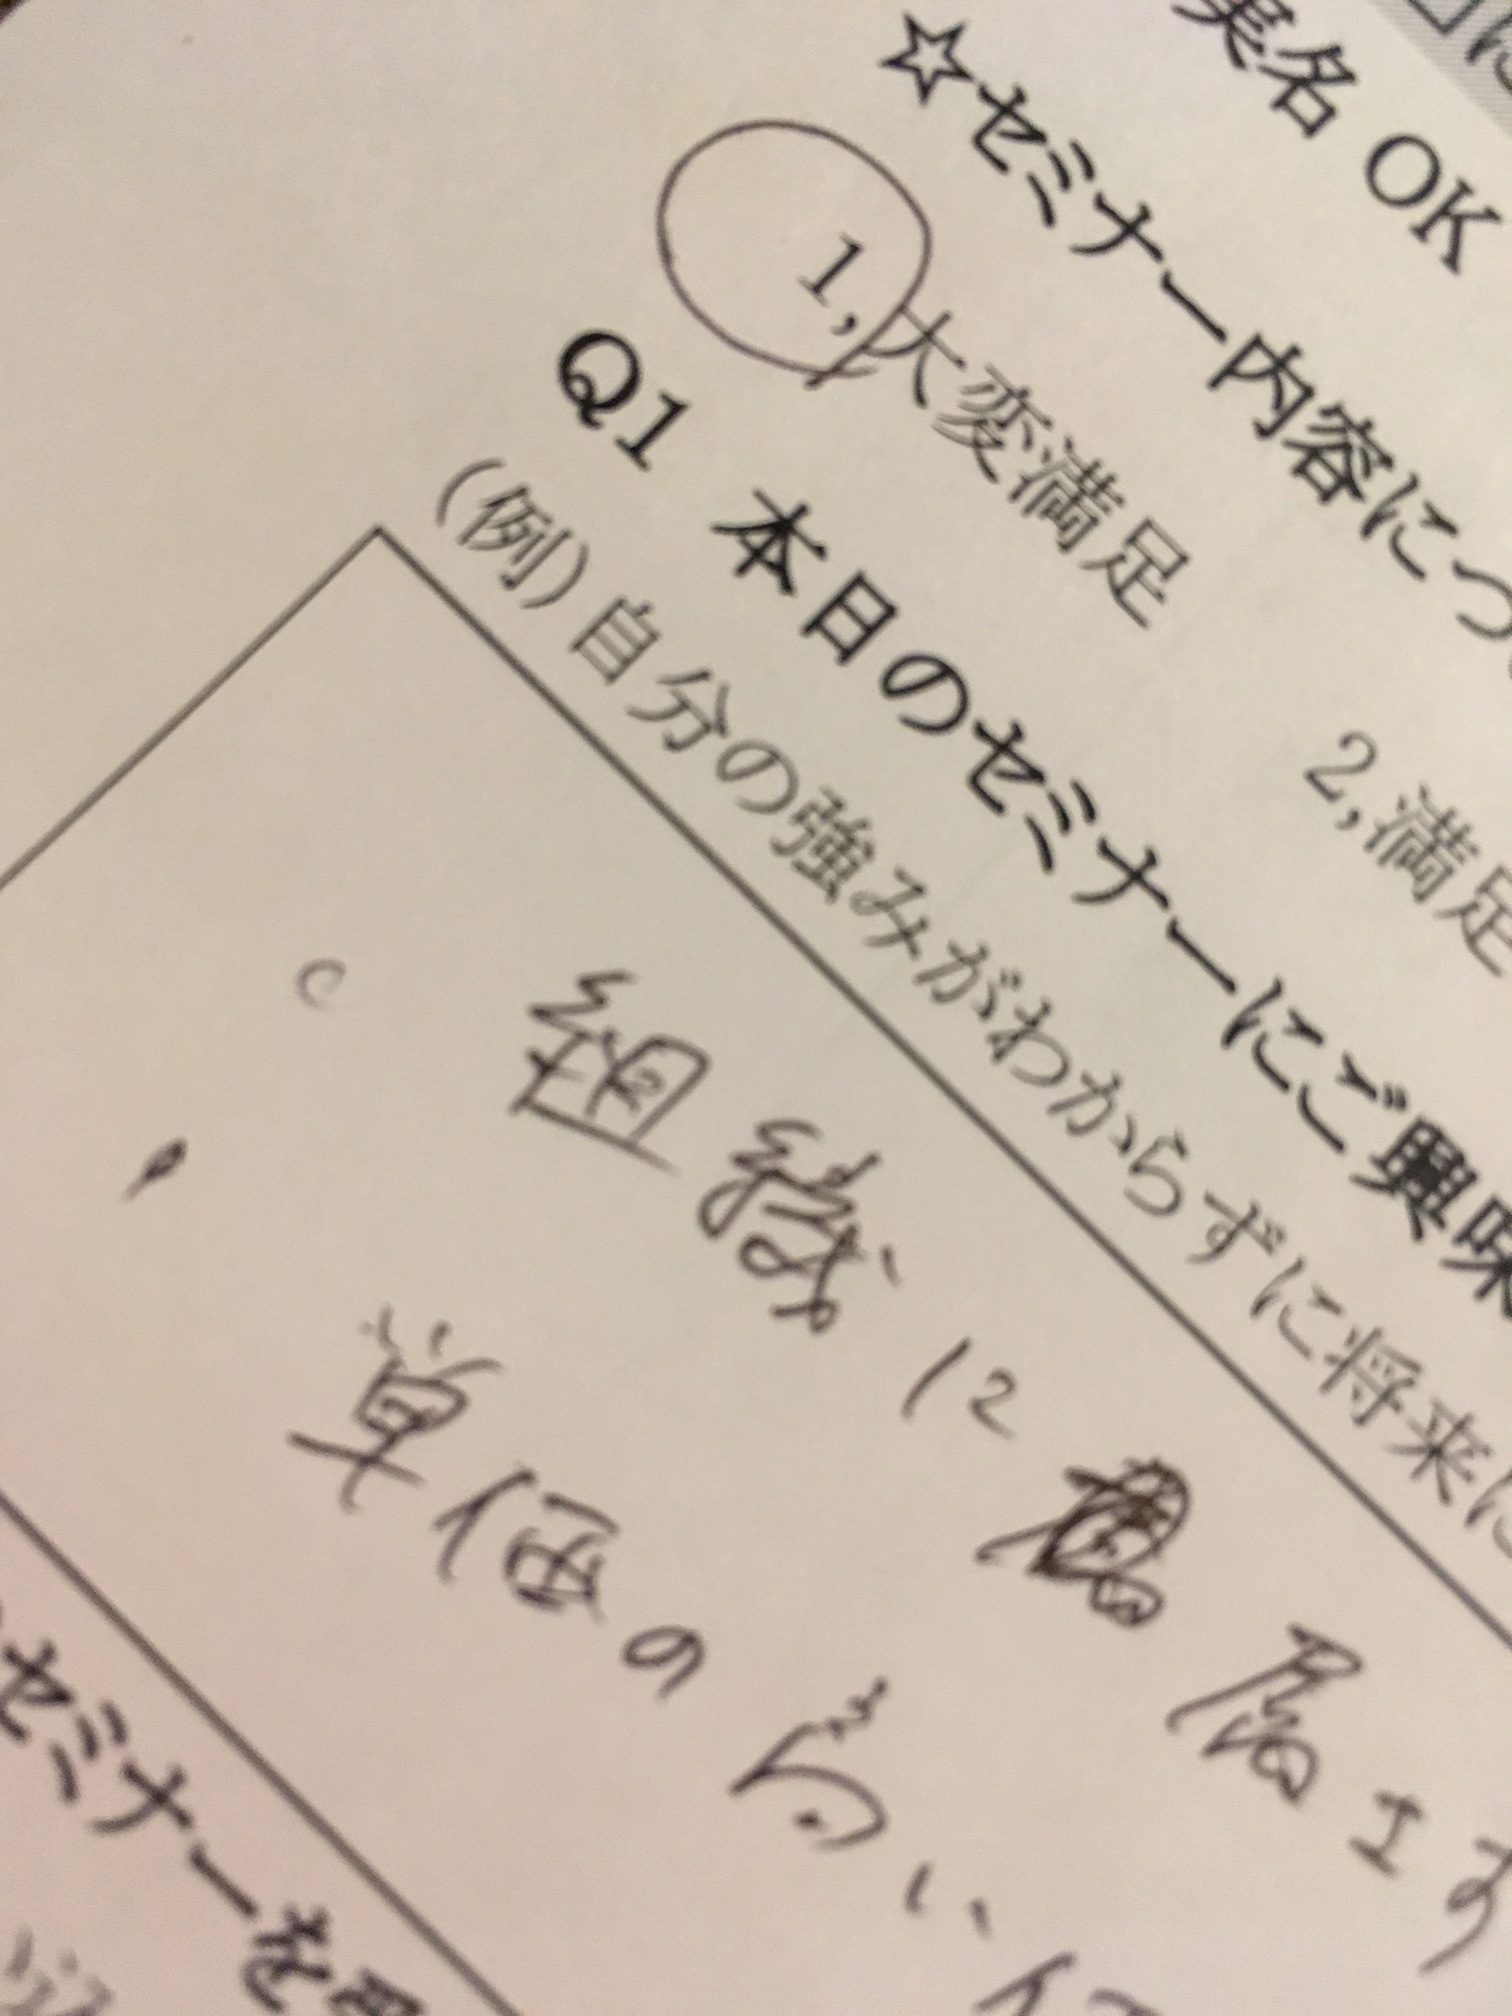 実名 OK
☆セミナー内容につ
1,大変満足 2,満足
Q1 本日のセミナーにご興味
(例)自分の強みがわからずに将来に
組織に属さず
単価の高い
セミナーを受